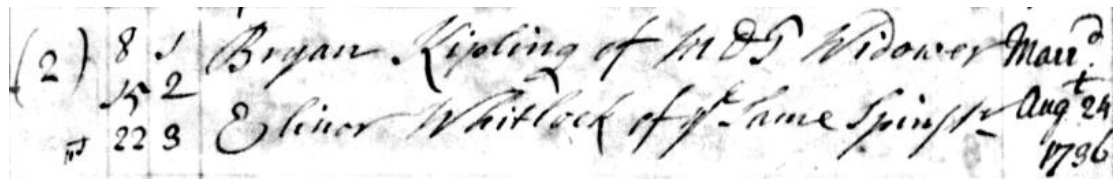 (2) 8 1 Bryan Kipling of M D T Widower Marr.d
15 2 Aug.t 24
22 3 Elinor Whitlock of y.e Same Spinst.r 1736